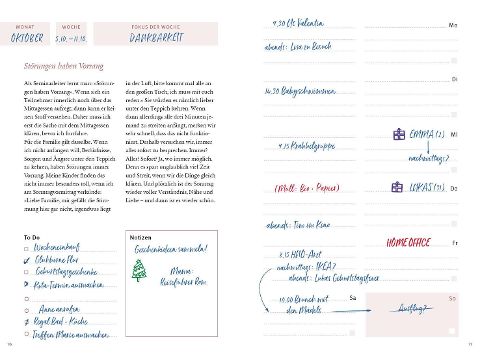 MONAT
OKTOBER
WOCHE
5.10.–11.10.
FOKUS DER WOCHE
DANKBARKEIT
Störungen haben Vorrang
Als Seminarleiter lernt man: »Störungen haben Vorrang«. Wenn sich ein
Teilnehmer innerlich noch über das
Mittagessen aufregt, dann kann er keinen Stoff verstehen. Daher muss ich
erst die Sache mit dem Mittagessen
klären, bevor ich fortfahre.
Für die Familie gilt dasselbe. Wenn
ich nicht anfangen will, Bedürfnisse,
Sorgen und Ängste unter den Teppich
zu kehren, haben Störungen immer
Vorrang. Meine Kinder finden das
nicht immer besonders toll, wenn ich
am Sonntagvormittag verkünde:
»Liebe Familie, mir gefällt die Stimmung hier gar nicht, irgendwas liegt
in der Luft, bitte kommt mal alle an
den großen Tisch, ich muss mit euch
reden.« Sie würden es nämlich lieber
unter den Teppich kehren. Wenn
dann allerdings alle drei Minuten jemand zu streiten anfängt, merken wir
sehr schnell, dass das nicht funktioniert. Deshalb versuchen wir immer
alles sofort zu besprechen. Immer?
Alles? Sofort? Ja, wo immer möglich.
Denn es spart unglaublich viel Zeit
und Streit, wenn wir die Dinge gleich
klären. Und plötzlich ist der Sonntag
wieder voller Verständnis, Nähe und
Liebe – und dann ist er wieder schön.
To Do
Wocheneinkauf
Geburtstagsgeschenke
Termin ausmachen
Anne anrufen
Regal Bad + Küche
Treffen Marie ausmachen
Notizen
Geschenkideen sammeln!
Mama:
Reiseführer Rom
Mo
9.30 Uhr Valentin
abends: Lisa zu Besuch
Di
14.30 Babyschwimmen
Mi
EMMA (2)
9.15 Krabbelgruppe
nachmittags?
Do
(Müll: Bio + Papier)
LUKAS (1)
abends: Tim im Kino
Fr
HOMEOFFICE
8.15 HNO-Arzt
nachmittags: IKEA?
abends: Lukas Geburtstagsfeier
Sa
10.00 Brunch mit
den Mädels
So
Ausflug?